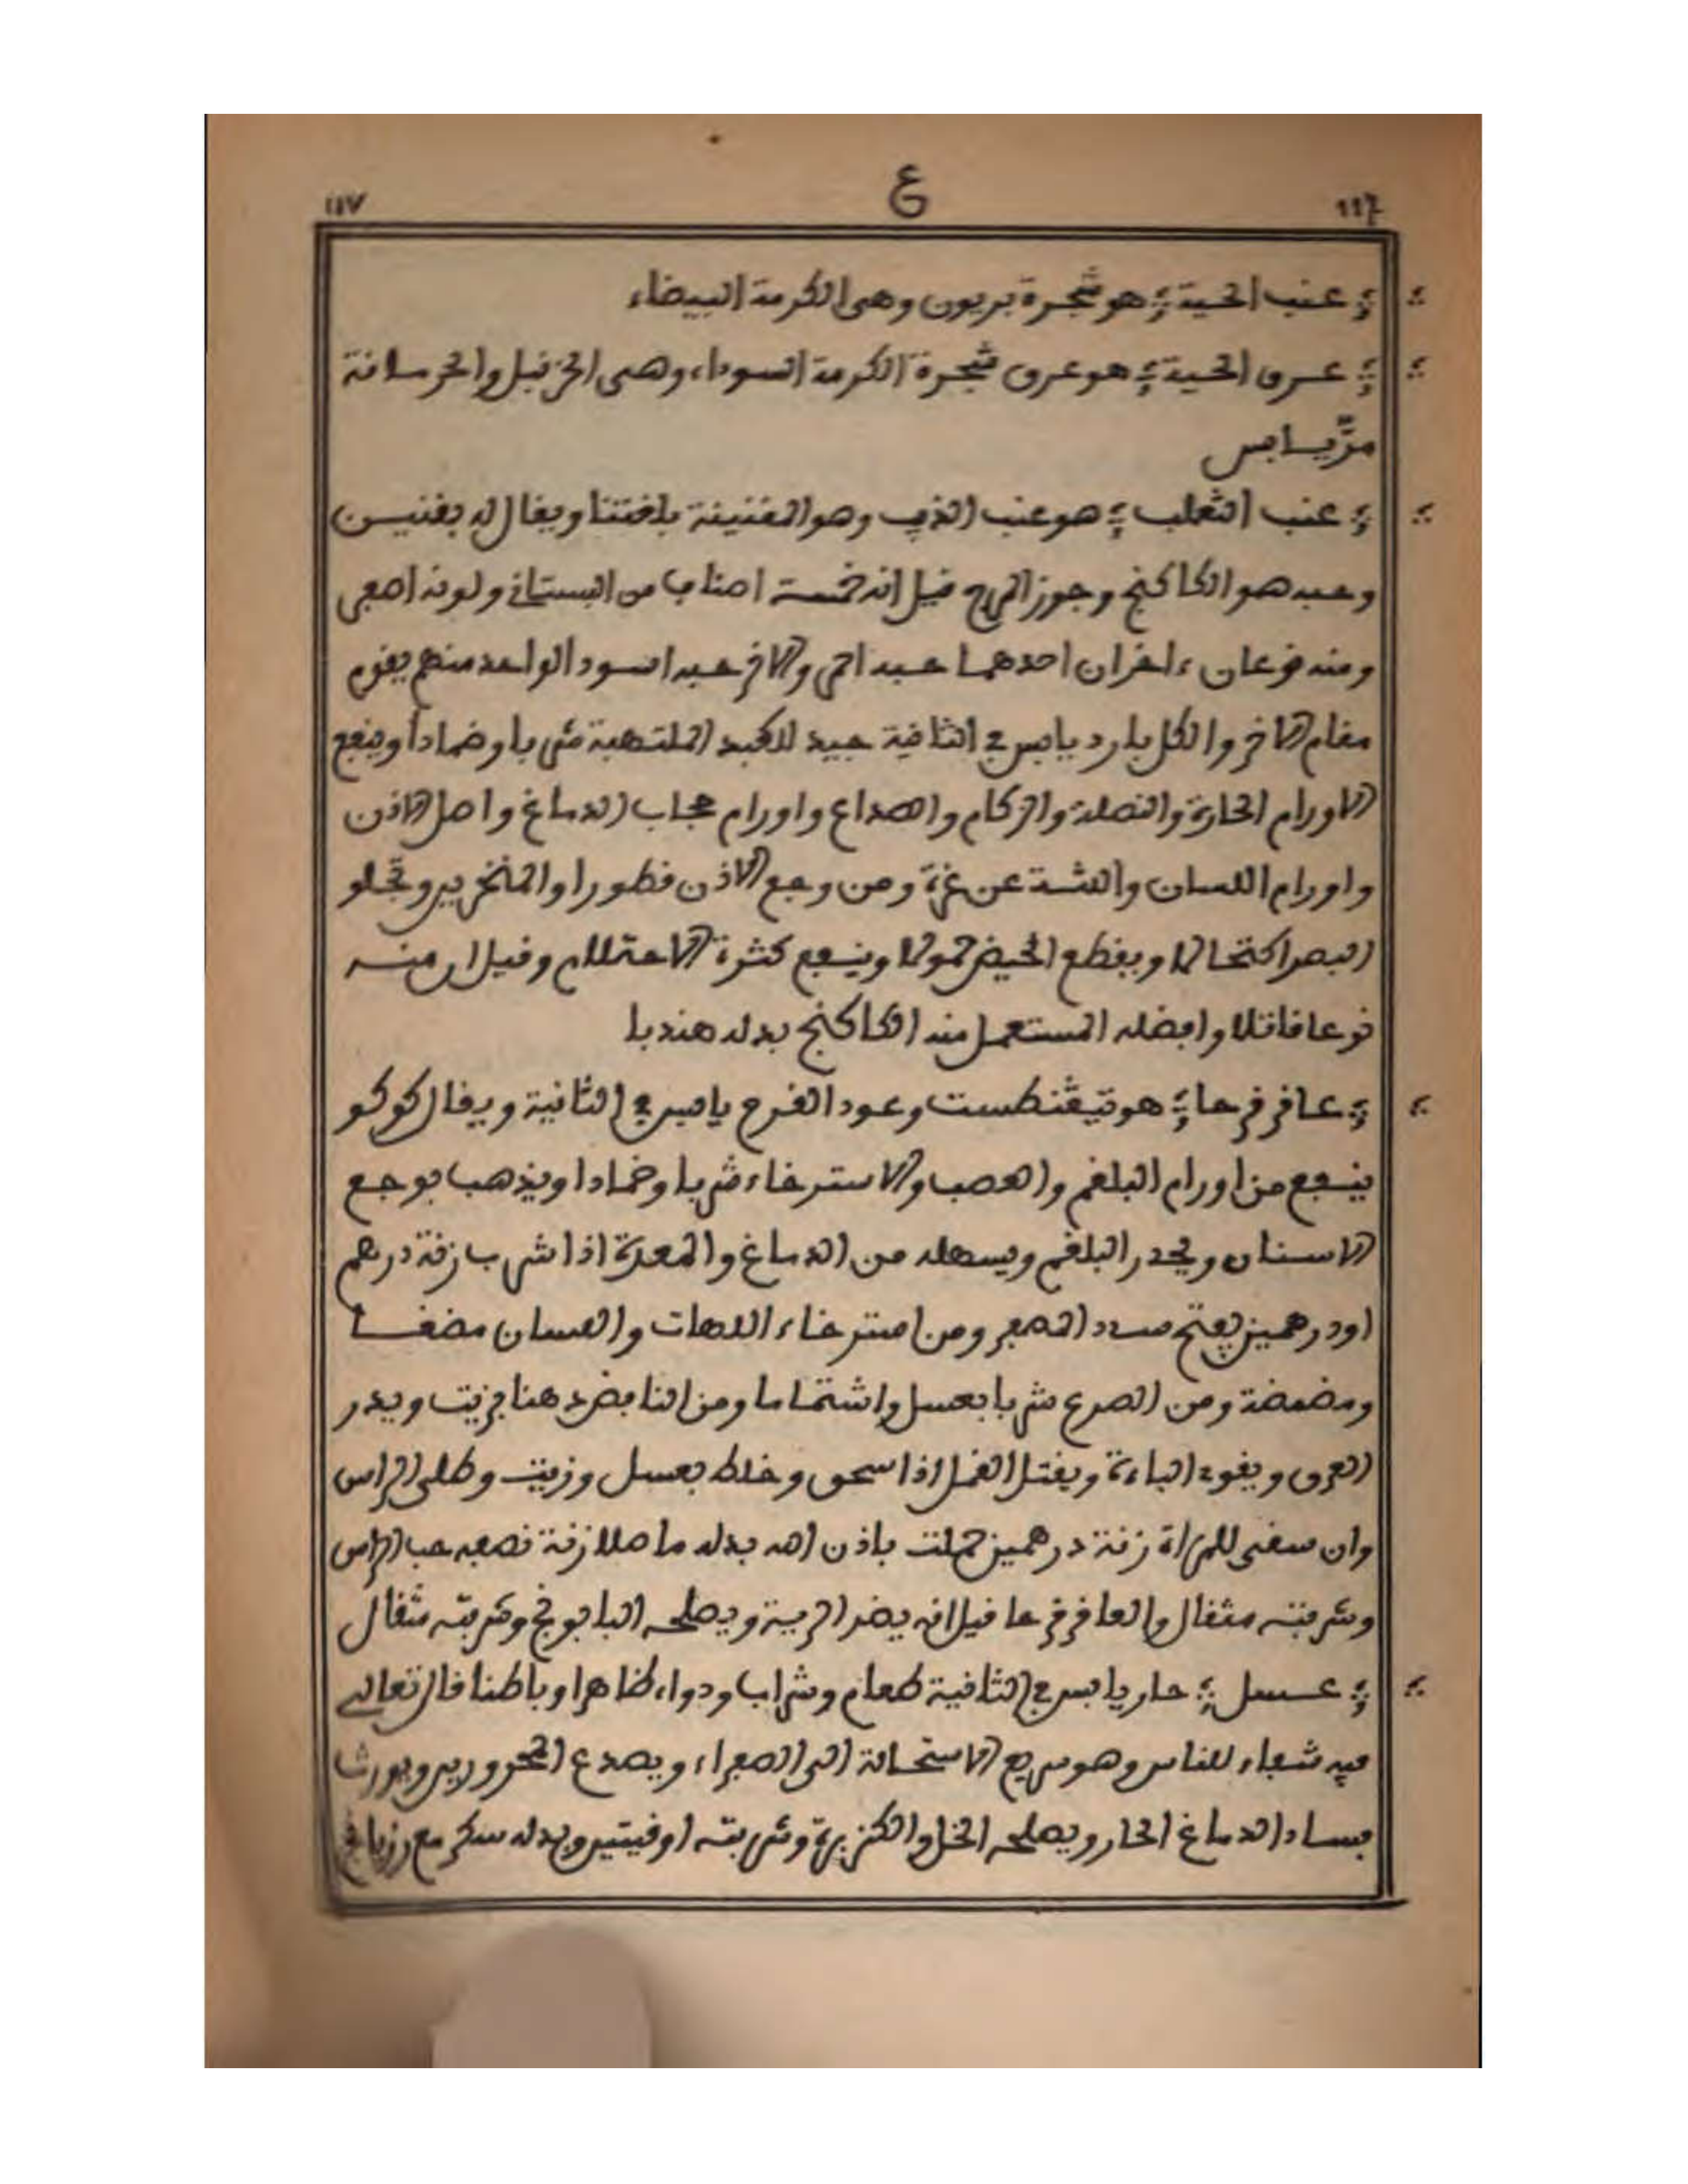 117 ع ١١٧
عنب الحية هو شجرة بريون وهى الكرمة البيضاء
عرق الحية هو عرق شجرة الكرمة السوداء وهى الخزنبل والحرسانة
مرّ يابس
عنب الثعلب هو عنب الذيب وهو القنينة بلغتنا ويقال له بقنيس
وحبه هو الكاكنج وجوز المرج قيل انه خمسة اصناف من البستاني ولونه اصفر
ومنه نوعان ءاخران احدهما حبه احمر والاخر حبه اسود الواحد منهم يقوم
مقام الاخر والكل بارد يابس في الثانية جيد للكبد الملتهبة شربا وضمادا وينفع
الاورام الحارة والنملة والزكام والصداع واورام حجاب الدماغ واصل الاذن
واورام اللسان واللثة عن غرة ومن وجع الاذن قطورا والمنخرين وتجلو
البصر اكتحالا ويقطع الحيض حمولا وينفع كثرة الاحتلام وقيل ان منه
نوعا قاتلا وافضله المستعمل منه الكاكنج بدله هندبا
عاقر قرحا هو تيقنطست وعود القرح يابس في الثانية ويقال كوكو
ينفع من اورام البلغم والعصب والاسترخاء شربا وضمادا ويذهب بوجع
الاسنان ويحدر البلغم ويسهله من الدماغ والمعدة اذا شرب زنة درهم
او درهمين يفتح سدد المصفر ومن استرخاء اللهات واللسان مضغا
ومضمضة ومن الصرع شربا بعسل واشتماما ومن النافض دهنا بزيت ويدر
العرق ويقوى الباءة ويقتل القمل اذا سحق وخلط بعسل وزيت وطلى الراس
وان سقى للمراة زنة درهمين حملت باذن الله بدله ماصلا زنة نصفه حب الراس
وشربته مثقال والعاقر قرحا قيل انه يضر الرية ويصلحه البابونج وشربته مثقال
عسل حار يابس في الثانية طعام وشراب ودواء ظاهرا وباطنا قال تعالى
فيه شفاء للناس وهو سريع الاستحالة الى الصفراء ويصدع المحرورين ويورث
فساد الدماغ الحار ويصلحه الخل والكزبرة وشربته اوقيتين وبدله سكر مع رزيانج